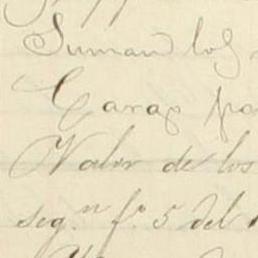 Suman los
Caras pa
Valor de los
seg.n f.o 5 del